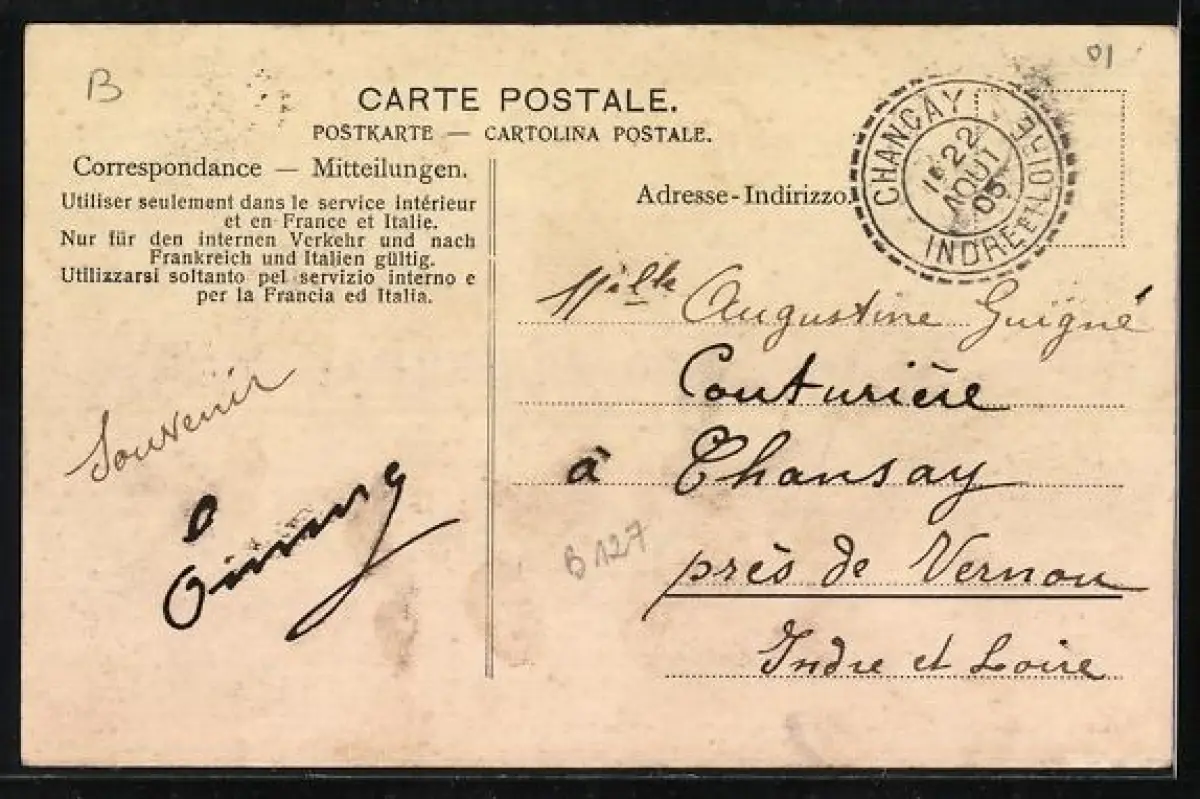 B
01
CARTE POSTALE.
POSTKARTE — CARTOLINA POSTALE.
Correspondance — Mitteilungen.
Utiliser seulement dans le service intérieur
et en France et Italie.
Nur für den internen Verkehr und nach
Frankreich und Italien gültig.
Utilizzarsi soltanto pel servizio interno e
per la Francia ed Italia.
Adresse-Indirizzo.
CHANCAY
22
AOUT
05
INDRE ET LOIRE
Melle Augustine Guigné
Couturière
à Chansay
près de Vernou
Indre et Loire
Souvenir
B 127